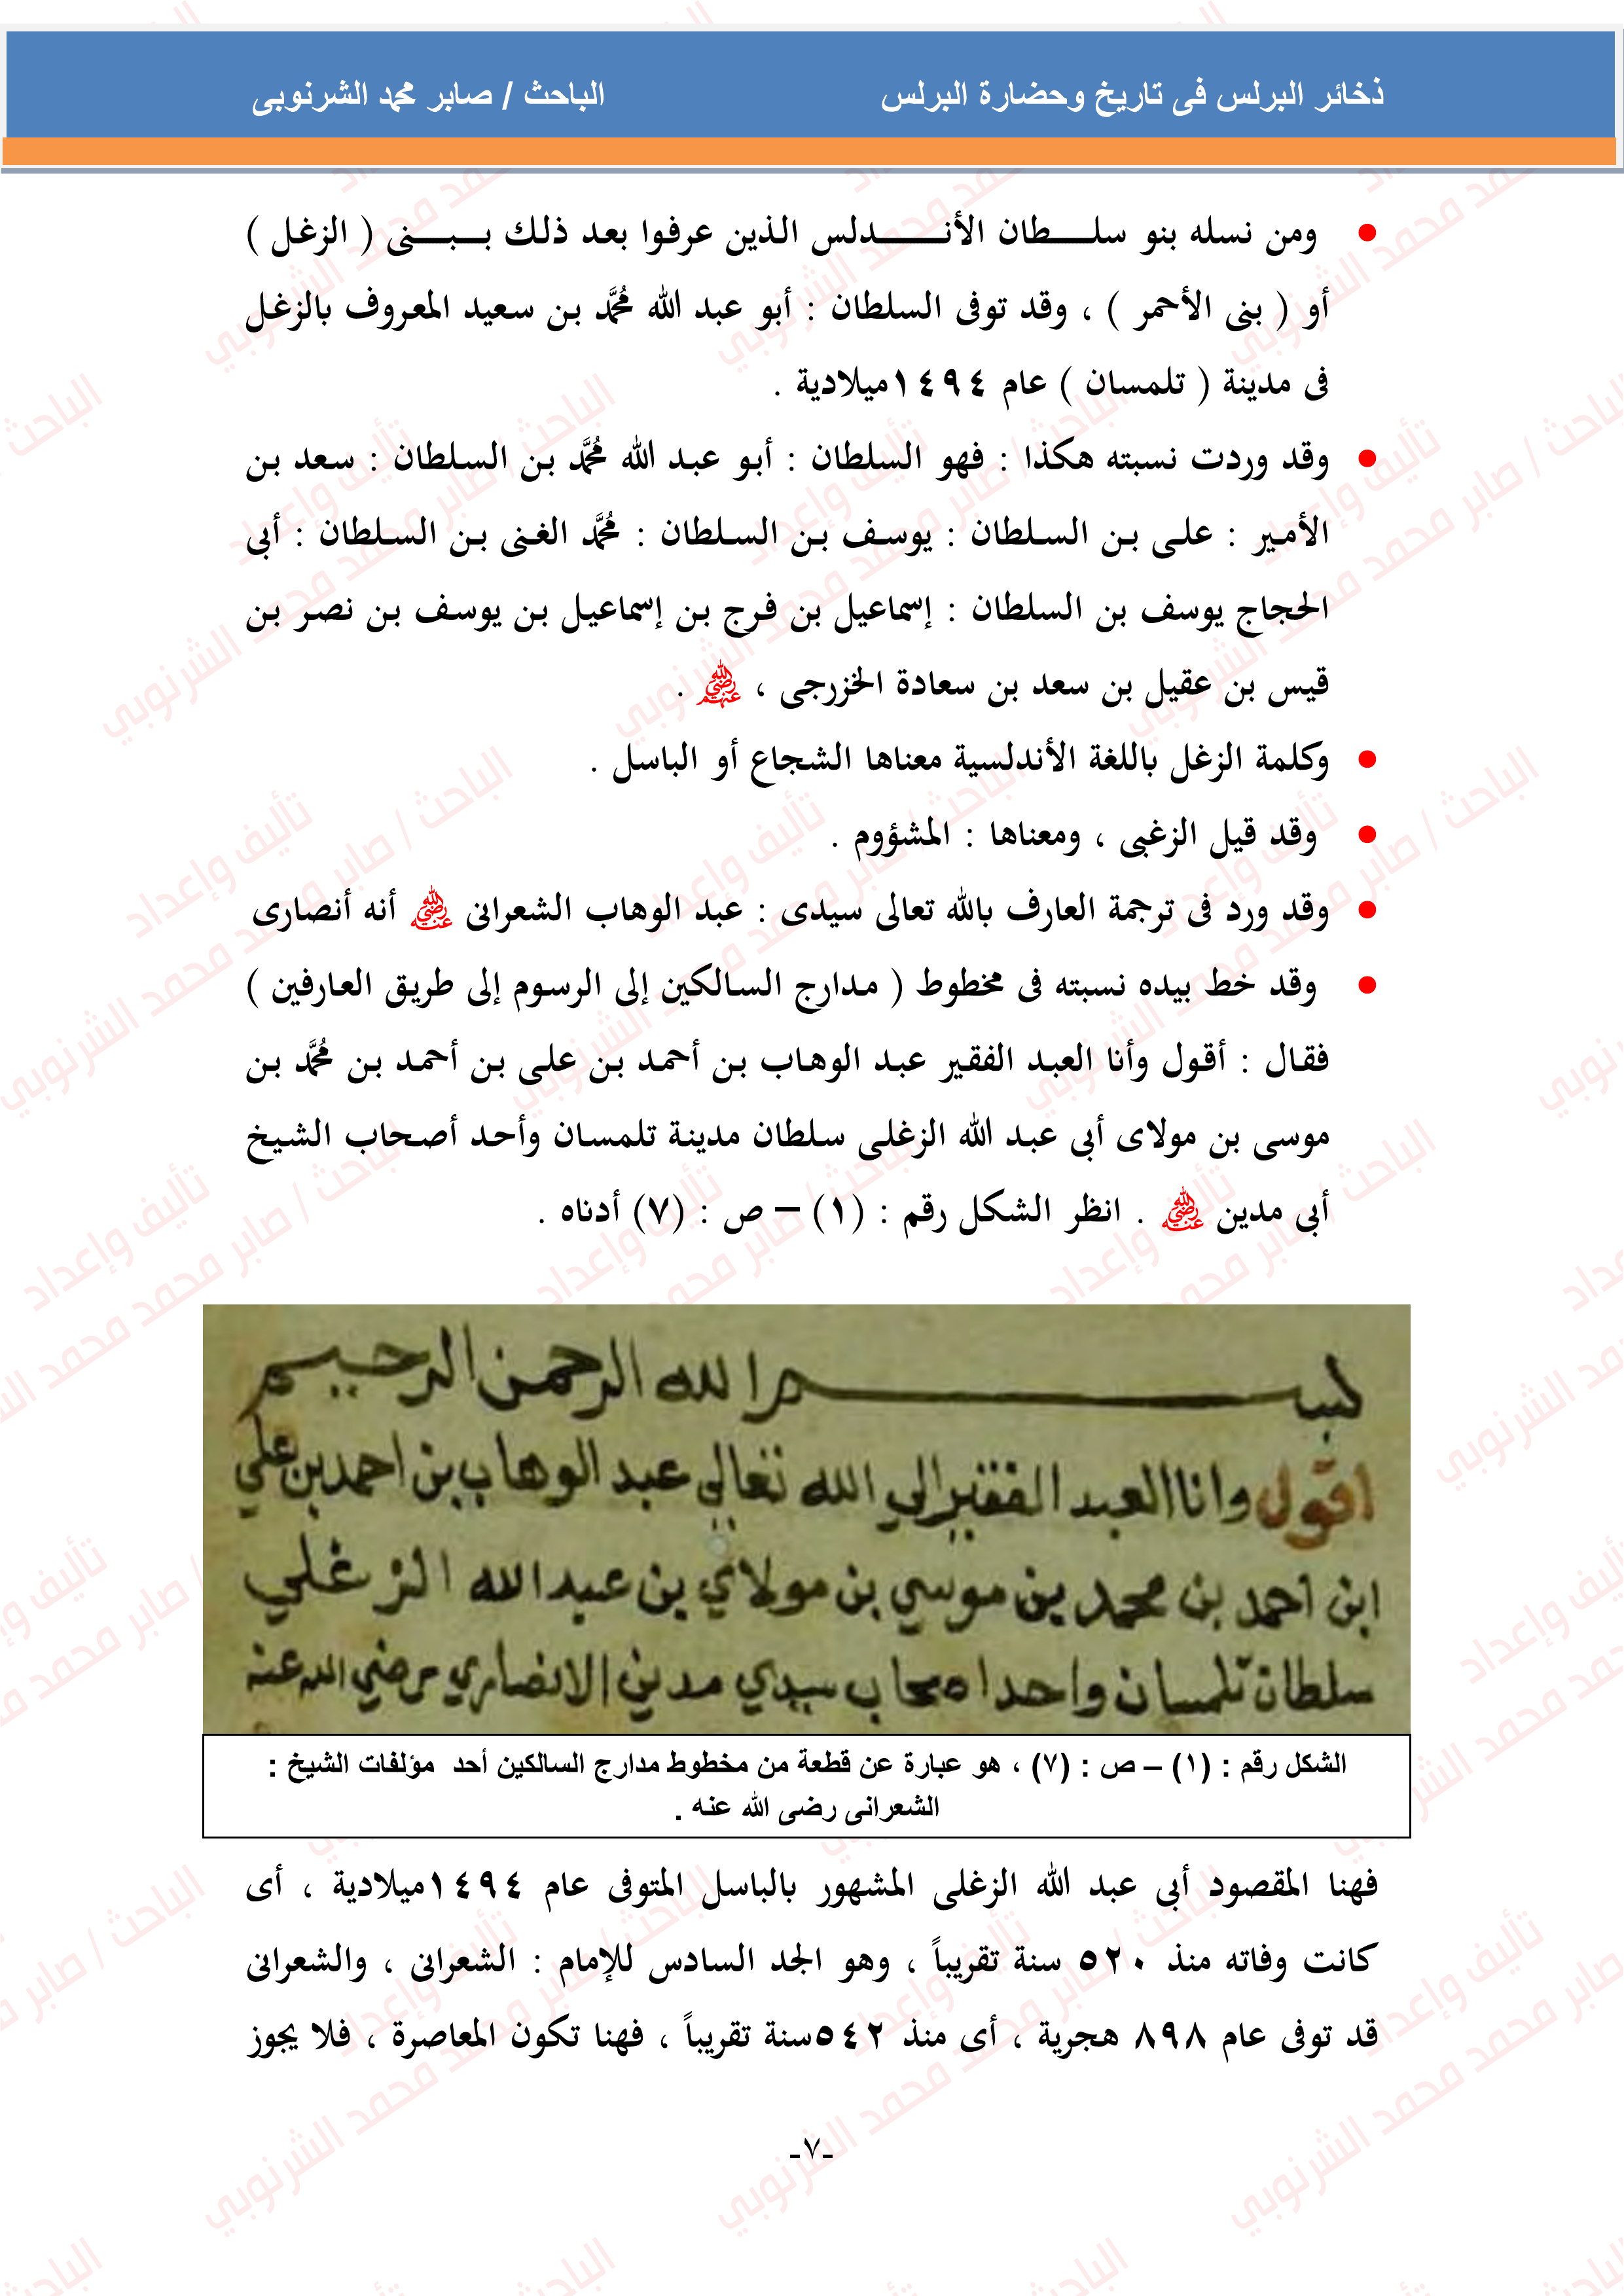 ذخائر البرلس فى تاريخ وحضارة البرلس الباحث / صابر محمد الشرنوبى
ومن نسله بنو سلـــطان الأنـــــدلس الذين عرفوا بعد ذلك بـــبـــنى ( الزغل )
أو ( بنى الأحمر ) ، وقد توفى السلطان : أبو عبد الله مُحَمَّد بن سعيد المعروف بالزغل
فى مدينة ( تلمسان ) عام ١٤٩٤ميلادية .
وقد وردت نسبته هكذا : فهو السلطان : أبو عبد الله مُحَمَّد بن السلطان : سعد بن
الأمير : على بن السلطان : يوسف بن السلطان : مُحَمَّد الغنى بن السلطان : أبى
الحجاج يوسف بن السلطان : إسماعيل بن فرج بن إسماعيل بن يوسف بن نصر بن
قيس بن عقيل بن سعد بن سعادة الخزرجى ، رضي الله عنهم .
وكلمة الزغل باللغة الأندلسية معناها الشجاع أو الباسل .
وقد قيل الزغبى ، ومعناها : المشؤوم .
وقد ورد فى ترجمة العارف بالله تعالى سيدى : عبد الوهاب الشعرانى رضي الله عنه أنه أنصارى
وقد خط بيده نسبته فى مخطوط ( مدارج السالكين إلى الرسوم إلى طريق العارفين )
فقال : أقول وأنا العبد الفقير عبد الوهاب بن أحمد بن على بن أحمد بن مُحَمَّد بن
موسى بن مولاى أبى عبد الله الزغلى سلطان مدينة تلمسان وأحد أصحاب الشيخ
أبى مدين رضي الله عنه . انظر الشكل رقم : (١) – ص : (٧) أدناه .
بسم الله الرحمن الرحيم
اقول وانا العبد الفقير الي الله تعالي عبد الوهاب بن احمد بن علي
ابن احمد بن محمد بن موسي بن مولاي بن عبد الله الزغلي
سلطان تلمسان واحد اصحاب سيدي مدين الانصاري رضي الله عنه
الشكل رقم : (١) – ص : (٧) ، هو عبارة عن قطعة من مخطوط مدارج السالكين أحد مؤلفات الشيخ :
الشعرانى رضى الله عنه .
فهنا المقصود أبى عبد الله الزغلى المشهور بالباسل المتوفى عام ١٤٩٤ميلادية ، أى
كانت وفاته منذ ٥٢٠ سنة تقريباً ، وهو الجد السادس للإمام : الشعرانى ، والشعرانى
قد توفى عام ٨٩٨ هجرية ، أى منذ ٥٤٢سنة تقريباً ، فهنا تكون المعاصرة ، فلا يجوز
-٧-
تأليف وإعداد
الباحث / صابر محمد محمد الشرنوبي